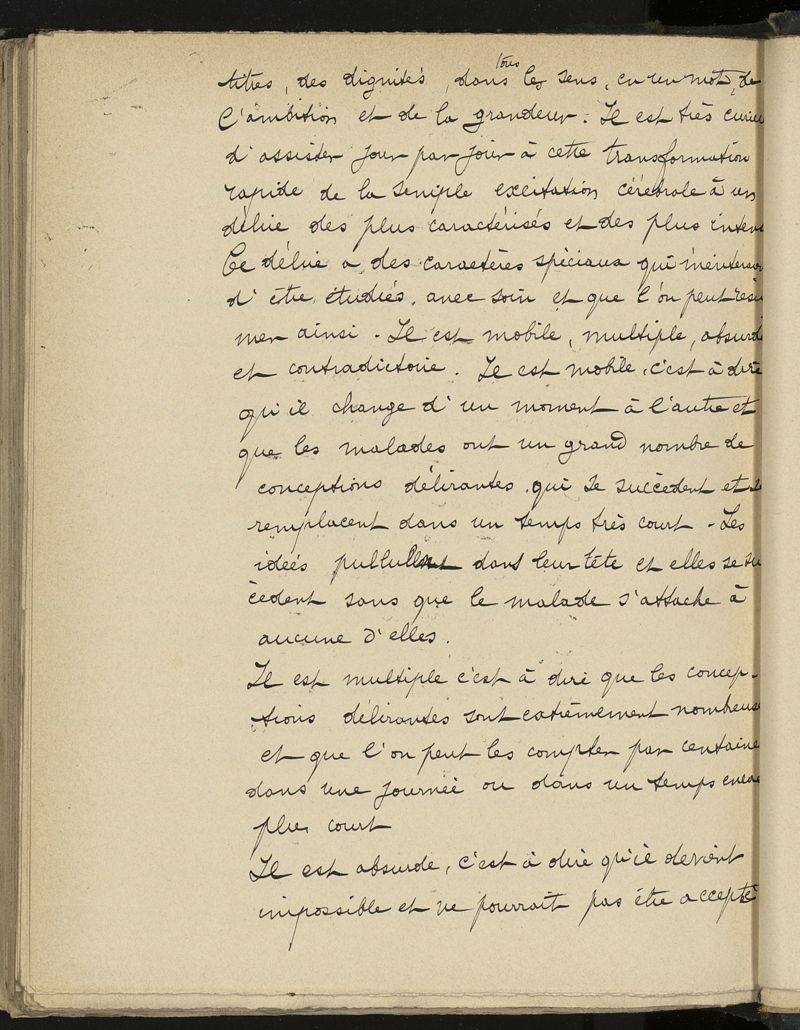 titres, des dignités, dans tous les sens, en un mot, de
l'ambition et de la grandeur. Il est très curieu
d'assister jour par jour à cette transformation
rapide de la simple excitation cérébrale à un
délire des plus caractérisés et des plus inten
Ce délire a des caractères spéciaux qui méritera
d'être étudiés, avec soin et que l'on peut résu
mer ainsi. Il est mobile, multiple, absurde
et contradictoire. Il est mobile, c'est à dire
qu'il change d'un moment à l'autre et
que les malades ont un grand nombre de
conceptions délirantes qui se succèdent et se
remplacent dans un temps très court. Les
idées pullulent dans leur tête et elles se su
cèdent sans que le malade s'attache à
aucune d'elles.
Il est multiple c'est à dire que les concep-
tions délirantes sont extrêmement nombreuse
et que l'on peut les compter par centaine
dans une journée ou dans un temps encore
plus court
Il est absurde, c'est à dire qu'il devient
impossible et ne pourrait pas être accepté